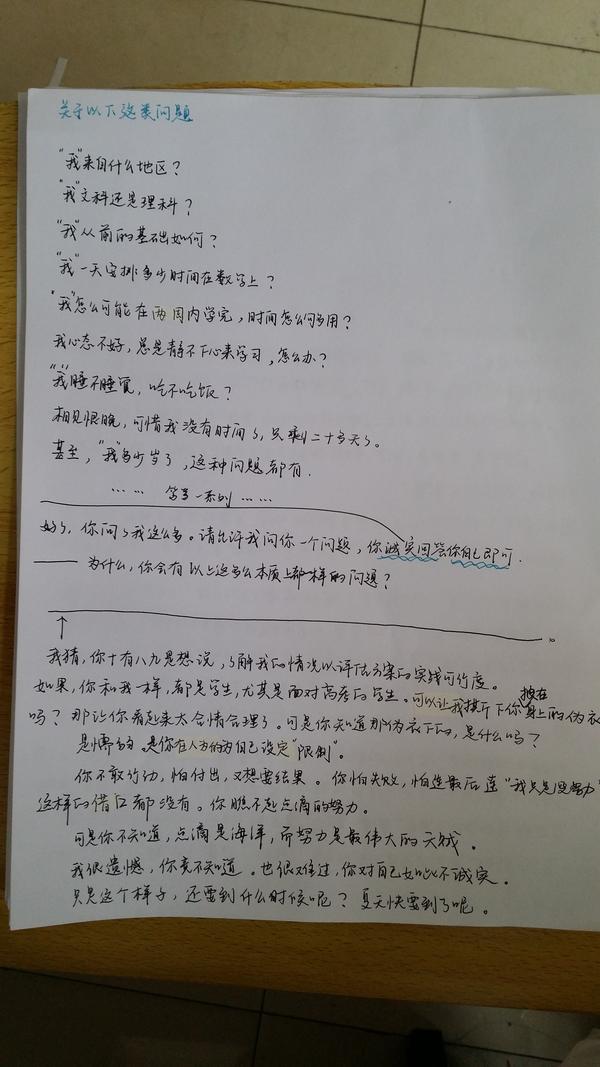 关于以下这类问题
"我"来自什么地区？
"我"文科还是理科？
"我"从前的基础如何？
"我"一天安排多少时间在数学上？
"我"怎么可能在两周内学完，时间怎么够用？
我心态不好，总是静不下心来学习，怎么办？
"我"睡不睡觉，吃不吃饭？
相见恨晚，可惜我没有时间了，只剩二十多天了。
甚至，"我"多少岁了，这种问题都有.
…… 等等一系列 ……
好了，你问了我这么多。请允许我问你一个问题，你诚实回答你自己即可.
—— 为什么，你会有以上这么多本质上都一样的问题？
我猜，你十有八九是想说，了解我的情况以评估方案的实践可行度。
如果，你和我一样，都是学生，尤其是面对高考的学生。可以让我摸斤下你披在身上的伪衣
吗？那让你看起来太合情合理了。可是你知道那伪衣下的，是什么吗？
是懦弱。是你在人为的为自己设定"限制"。
你不敢行动，怕付出，又想要结果。你怕失败，怕连最后连"我只是没努力"
这样的借口都没有。你瞧不起点滴的努力。
可是你不知道，点滴是海洋，而努力是最伟大的天赋。
我很遗憾，你竟不知道。也很难过，你对自己如此不诚实。
只是这个样子，还要到什么时候呢？夏天快要到了呢。